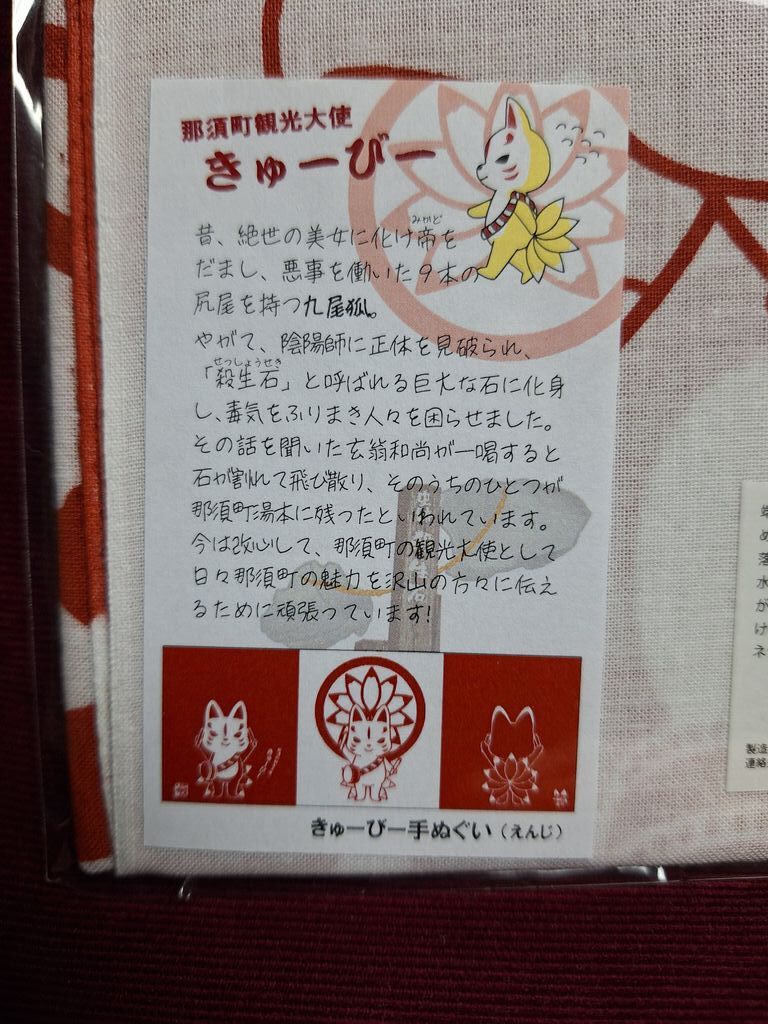 那須町観光大使
きゅーびー
昔、絶世の美女に化け帝を
みかど
だまし、悪事を働いた9本の
尻尾を持つ九尾狐。
やがて、陰陽師に正体を見破られ、
せっしょうせき
「殺生石」と呼ばれる巨大な石に化身
し、毒気をふりまき人々を困らせました。
その話を聞いた玄翁和尚が一喝すると
石が割れて飛び散り、そのうちのひとつが
那須町湯本に残ったといわれています。
今は改心して、那須町の観光大使として
日々那須町の魅力を沢山の方々に伝え
るために頑張っています!
きゅーびー手ぬぐい(えんじ)
め
落
水
が
け
ネ
製造
連絡